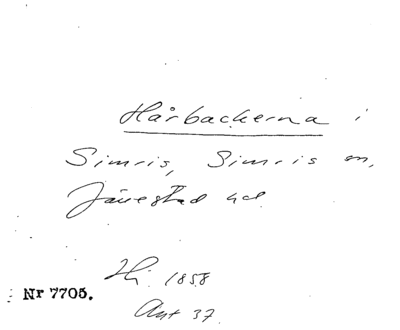 Hårbackerna i
Simris, Simris sn,
Järrestad hd
Hi. 1858
Nr 7705.
Ant 37